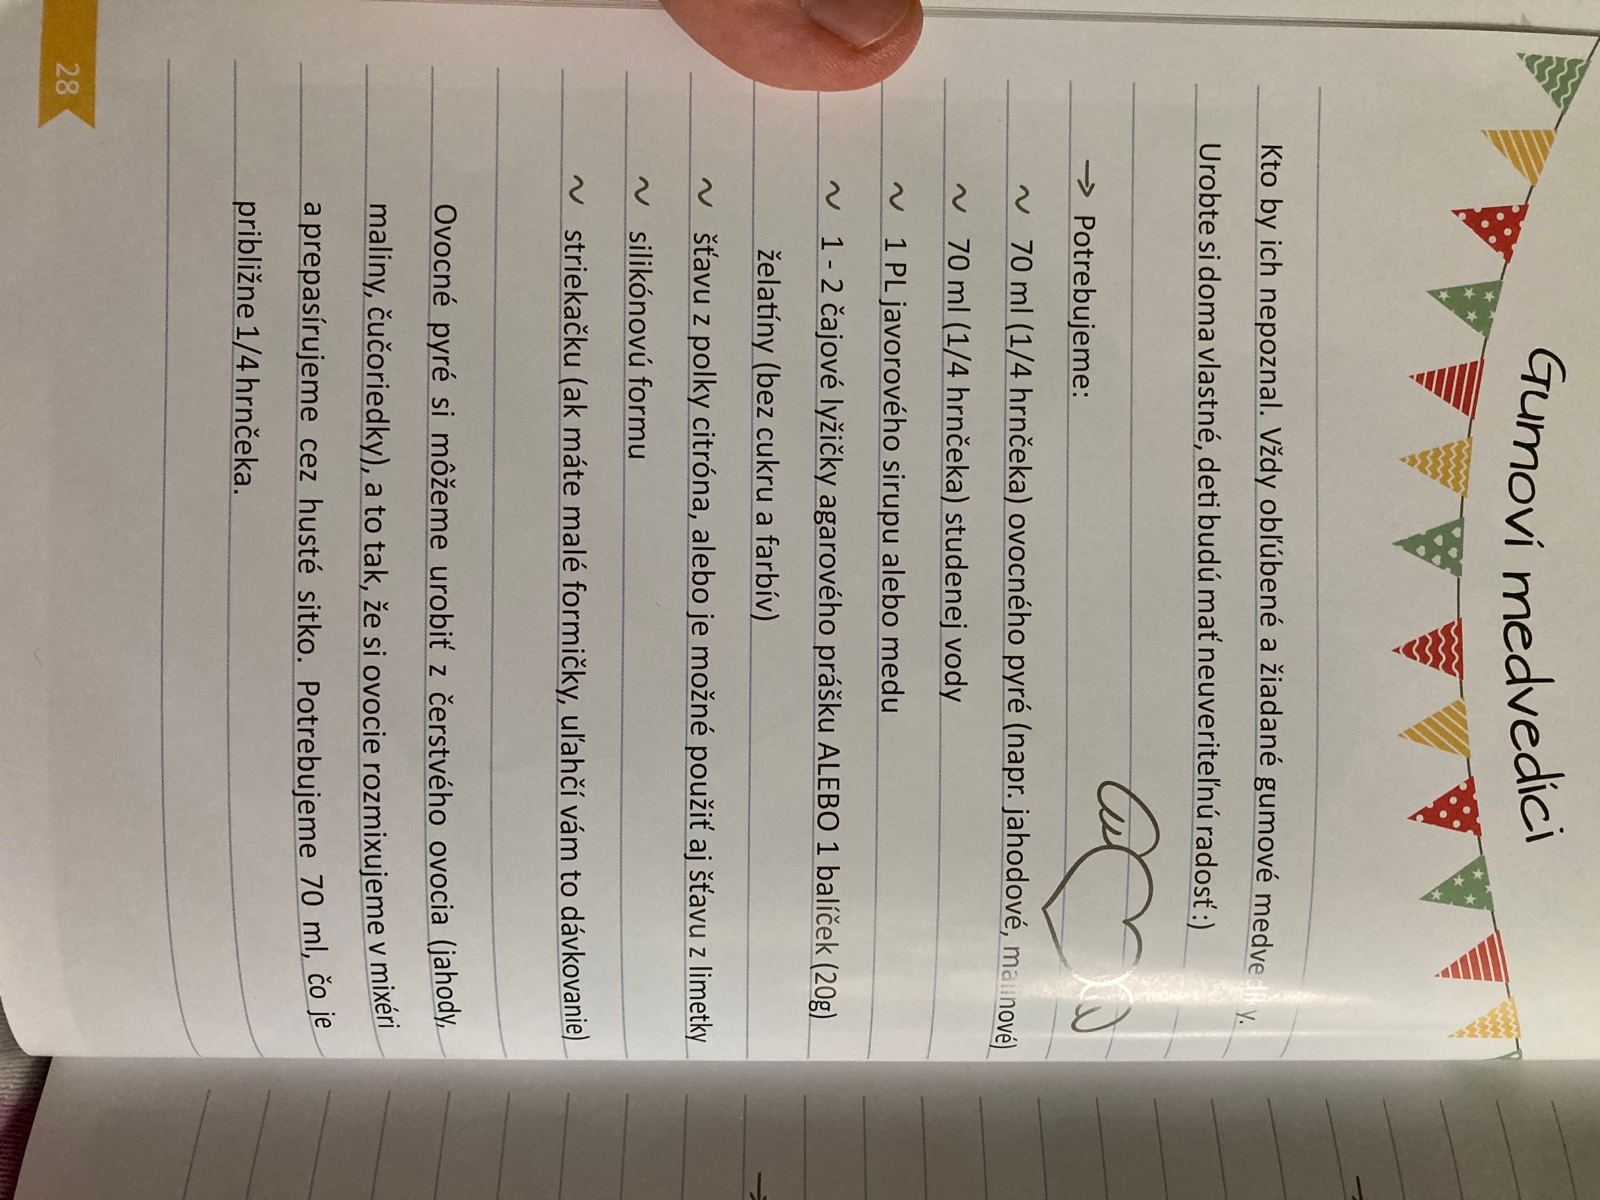 Gumoví medvedíci
Kto by ich nepoznal. Vždy obľúbené a žiadané gumové medvedíky.
Urobte si doma vlastné, deti budú mať neuveriteľnú radosť :)
→ Potrebujeme:
~ 70 ml (1/4 hrnčeka) ovocného pyré (napr. jahodové, malinové)
~ 70 ml (1/4 hrnčeka) studenej vody
~ 1 PL javorového sirupu alebo medu
~ 1 - 2 čajové lyžičky agarového prášku ALEBO 1 balíček (20g)
želatíny (bez cukru a farbív)
~ šťavu z polky citróna, alebo je možné použiť aj šťavu z limetky
~ silikónovú formu
~ striekačku (ak máte malé formičky, uľahčí vám to dávkovanie)
Ovocné pyré si môžeme urobiť z čerstvého ovocia (jahody,
maliny, čučoriedky), a to tak, že si ovocie rozmixujeme v mixéri
a prepasírujeme cez husté sitko. Potrebujeme 70 ml, čo je
približne 1/4 hrnčeka.
28